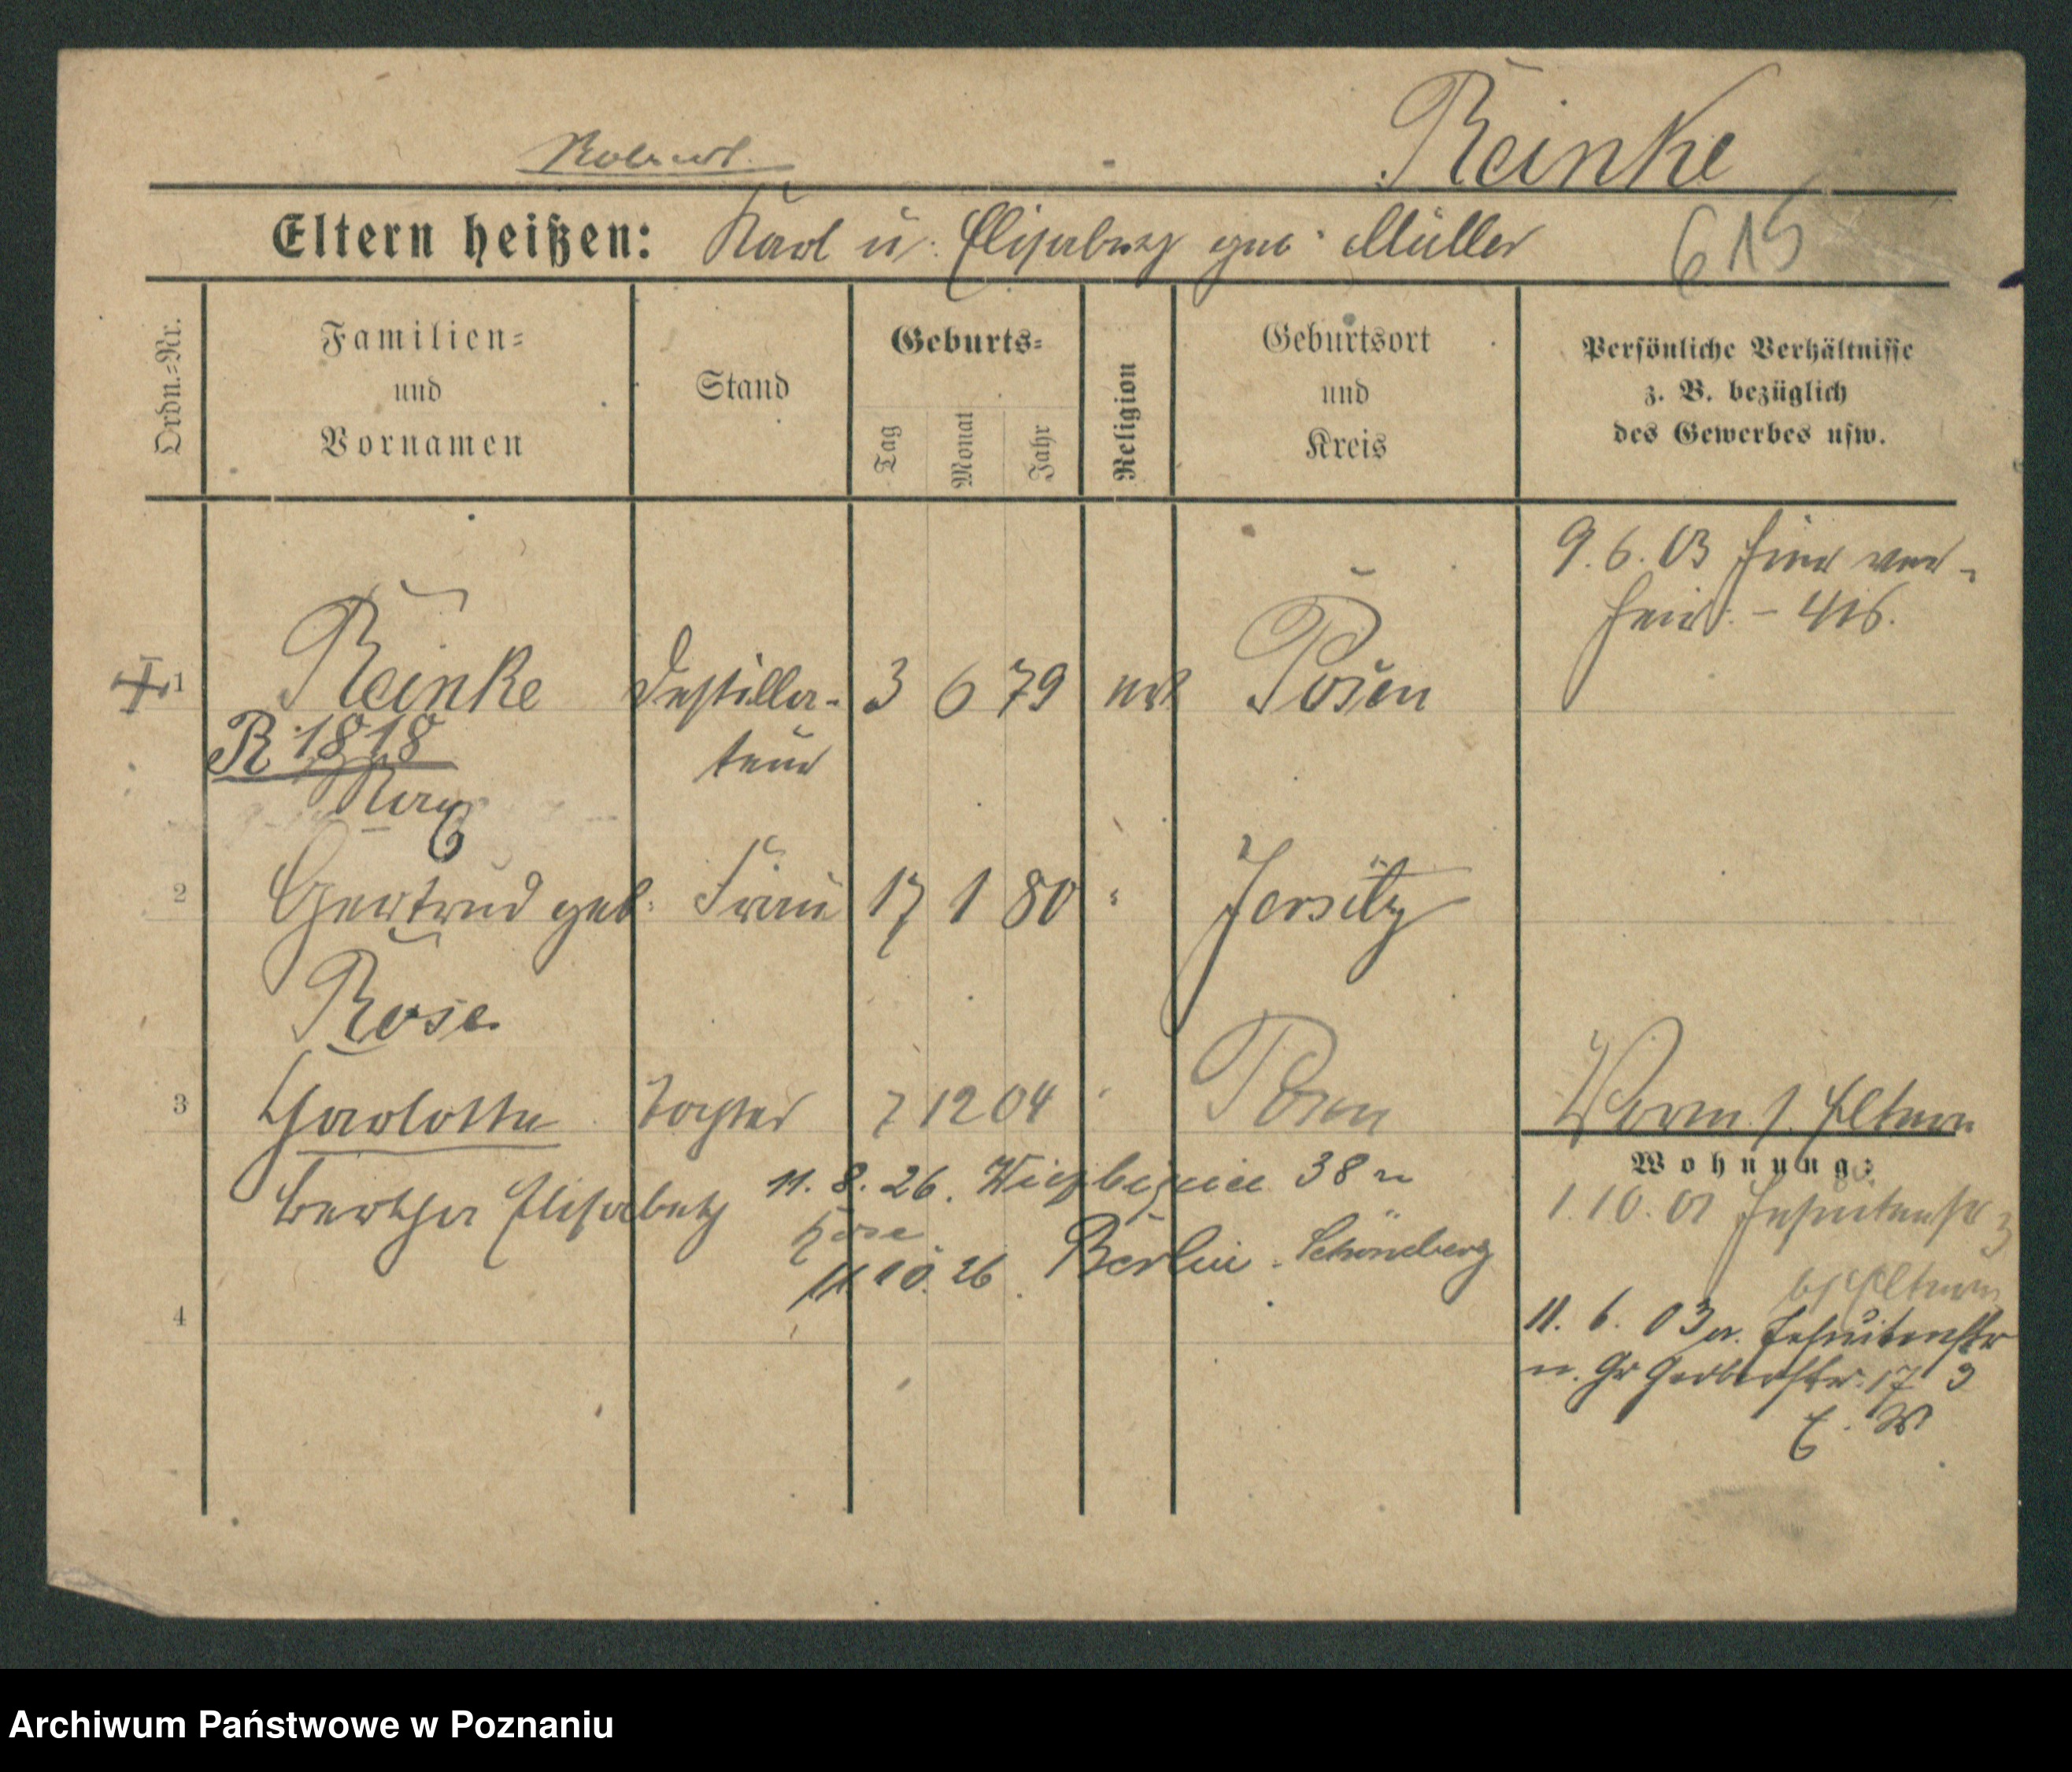 Reinke
Eltern heißen: Karl u. Elisabeth geb. Müller
615
Ordn.-Nr.
Familien-
und
Vornamen
Stand
Geburts-
Tag
Monat
Jahr
Religion
Geburtsort
und
Kreis
Persönliche Verhältnisse
z. B. bezüglich
des Gewerbes usw.
9.6.03 hier ver-
heir. - 416.
1 Reinke Destilla- 3 6 79 Posen
R 1818
teur
Max
2 Gertrud geb. Frau 17 1 80 " Jersitz
Rose
3 Charlotte Tochter 7 12 04 Posen
Worm. s. Eltern
Bertha Elisabeth
11. 8. 26. 38
11 10. 26. Berlin-Schöneberg
Wohnung:
1.10.01 Jesuitenstr 3
b/ Eltern
4
11. 6. 03 a. Jesuitenstr
n. Gr Gerberstr. 17 3
E. W
Archiwum Państwowe w Poznaniu